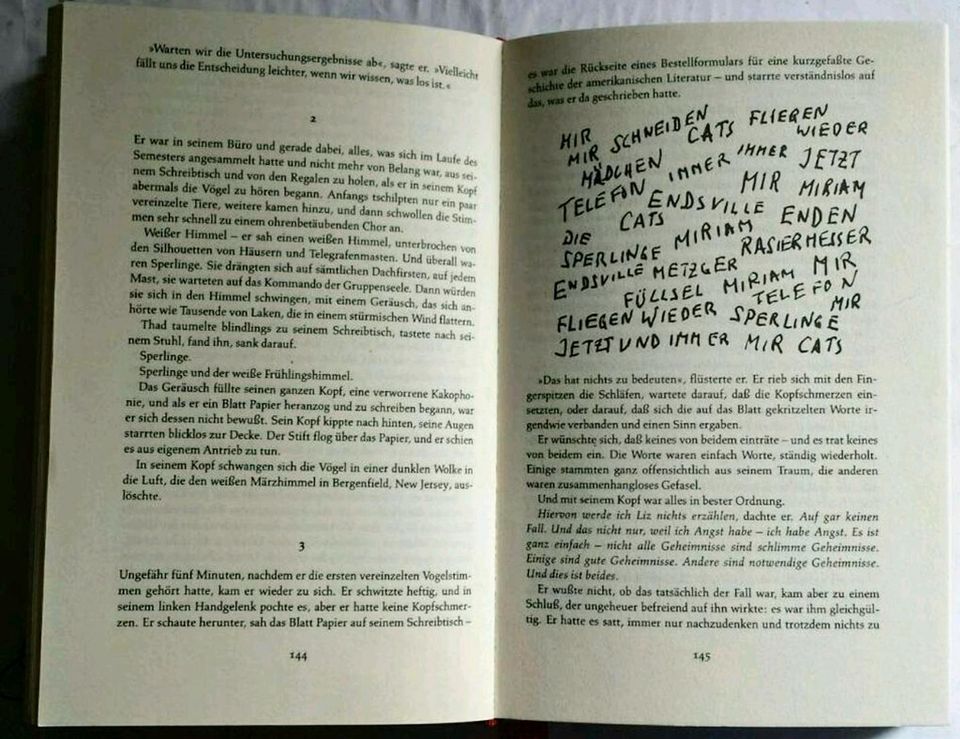 »Warten wir die Untersuchungsergebnisse ab«, sagte er. »Vielleicht
fällt uns die Entscheidung leichter, wenn wir wissen, was los ist.«
2
Er war in seinem Büro und gerade dabei, alles, was sich im Laufe des
Semesters angesammelt hatte und nicht mehr von Belang war, aus sei-
nem Schreibtisch und von den Regalen zu holen, als er in seinem Kopf
abermals die Vögel zu hören begann. Anfangs tschilpten nur ein paar
vereinzelte Tiere, weitere kamen hinzu, und dann schwollen die Stim-
men sehr schnell zu einem ohrenbetäubenden Chor an.
Weißer Himmel – er sah einen weißen Himmel, unterbrochen von
den Silhouetten von Häusern und Telegrafenmasten. Und überall wa-
ren Sperlinge. Sie drängten sich auf sämtlichen Dachfirsten, auf jedem
Mast, sie warteten auf das Kommando der Gruppenseele. Dann würden
sie sich in den Himmel schwingen, mit einem Geräusch, das sich an-
hörte wie Tausende von Laken, die in einem stürmischen Wind flattern.
Thad taumelte blindlings zu seinem Schreibtisch, tastete nach sei-
nem Stuhl, fand ihn, sank darauf.
Sperlinge.
Sperlinge und der weiße Frühlingshimmel.
Das Geräusch füllte seinen ganzen Kopf, eine verworrene Kakopho-
nie, und als er ein Blatt Papier heranzog und zu schreiben begann, war
er sich dessen nicht bewußt. Sein Kopf kippte nach hinten, seine Augen
starrten blicklos zur Decke. Der Stift flog über das Papier, und er schien
es aus eigenem Antrieb zu tun.
In seinem Kopf schwangen sich die Vögel in einer dunklen Wolke in
die Luft, die den weißen Märzhimmel in Bergenfield, New Jersey, aus-
löschte.
3
Ungefähr fünf Minuten, nachdem er die ersten vereinzelten Vogelstim-
men gehört hatte, kam er wieder zu sich. Er schwitzte heftig, und in
seinem linken Handgelenk pochte es, aber er hatte keine Kopfschmer-
zen. Er schaute herunter, sah das Blatt Papier auf seinem Schreibtisch –
144
es war die Rückseite eines Bestellformulars für eine kurzgefaßte Ge-
schichte der amerikanischen Literatur – und starrte verständnislos auf
das, was er da geschrieben hatte.
MIR
MIR SCHNEIDEN CATS FLIEGEN
MÄDCHEN IMMER IMMER WIEDER
TELEFON MIR JETZT
DIE ENDSVILLE MIRIAM
CATS
SPERLINGE MIRIAM ENDEN
ENDSVILLE METZGER RASIERMESSER
FÜLLSEL MIRIAM MIR
FLIEGEN WIEDER TELEFON
SPERLINGE MIR
JETZT UND IMMER MIR CATS
»Das hat nichts zu bedeuten«, flüsterte er. Er rieb sich mit den Fin-
gerspitzen die Schläfen, wartete darauf, daß die Kopfschmerzen ein-
setzten, oder darauf, daß sich die auf das Blatt gekritzelten Worte ir-
gendwie verbanden und einen Sinn ergaben.
Er wünschte sich, daß keines von beidem einträte – und es trat keines
von beidem ein. Die Worte waren einfach Worte, ständig wiederholt.
Einige stammten ganz offensichtlich aus seinem Traum, die anderen
waren zusammenhangloses Gefasel.
Und mit seinem Kopf war alles in bester Ordnung.
Hiervon werde ich Liz nichts erzählen, dachte er. Auf gar keinen
Fall. Und das nicht nur, weil ich Angst habe – ich habe Angst. Es ist
ganz einfach – nicht alle Geheimnisse sind schlimme Geheimnisse.
Einige sind gute Geheimnisse. Andere sind notwendige Geheimnisse.
Und dies ist beides.
Er wußte nicht, ob das tatsächlich der Fall war, kam aber zu einem
Schluß, der ungeheuer befreiend auf ihn wirkte: es war ihm gleichgül-
tig. Er hatte es satt, immer nur nachzudenken und trotzdem nichts zu
145